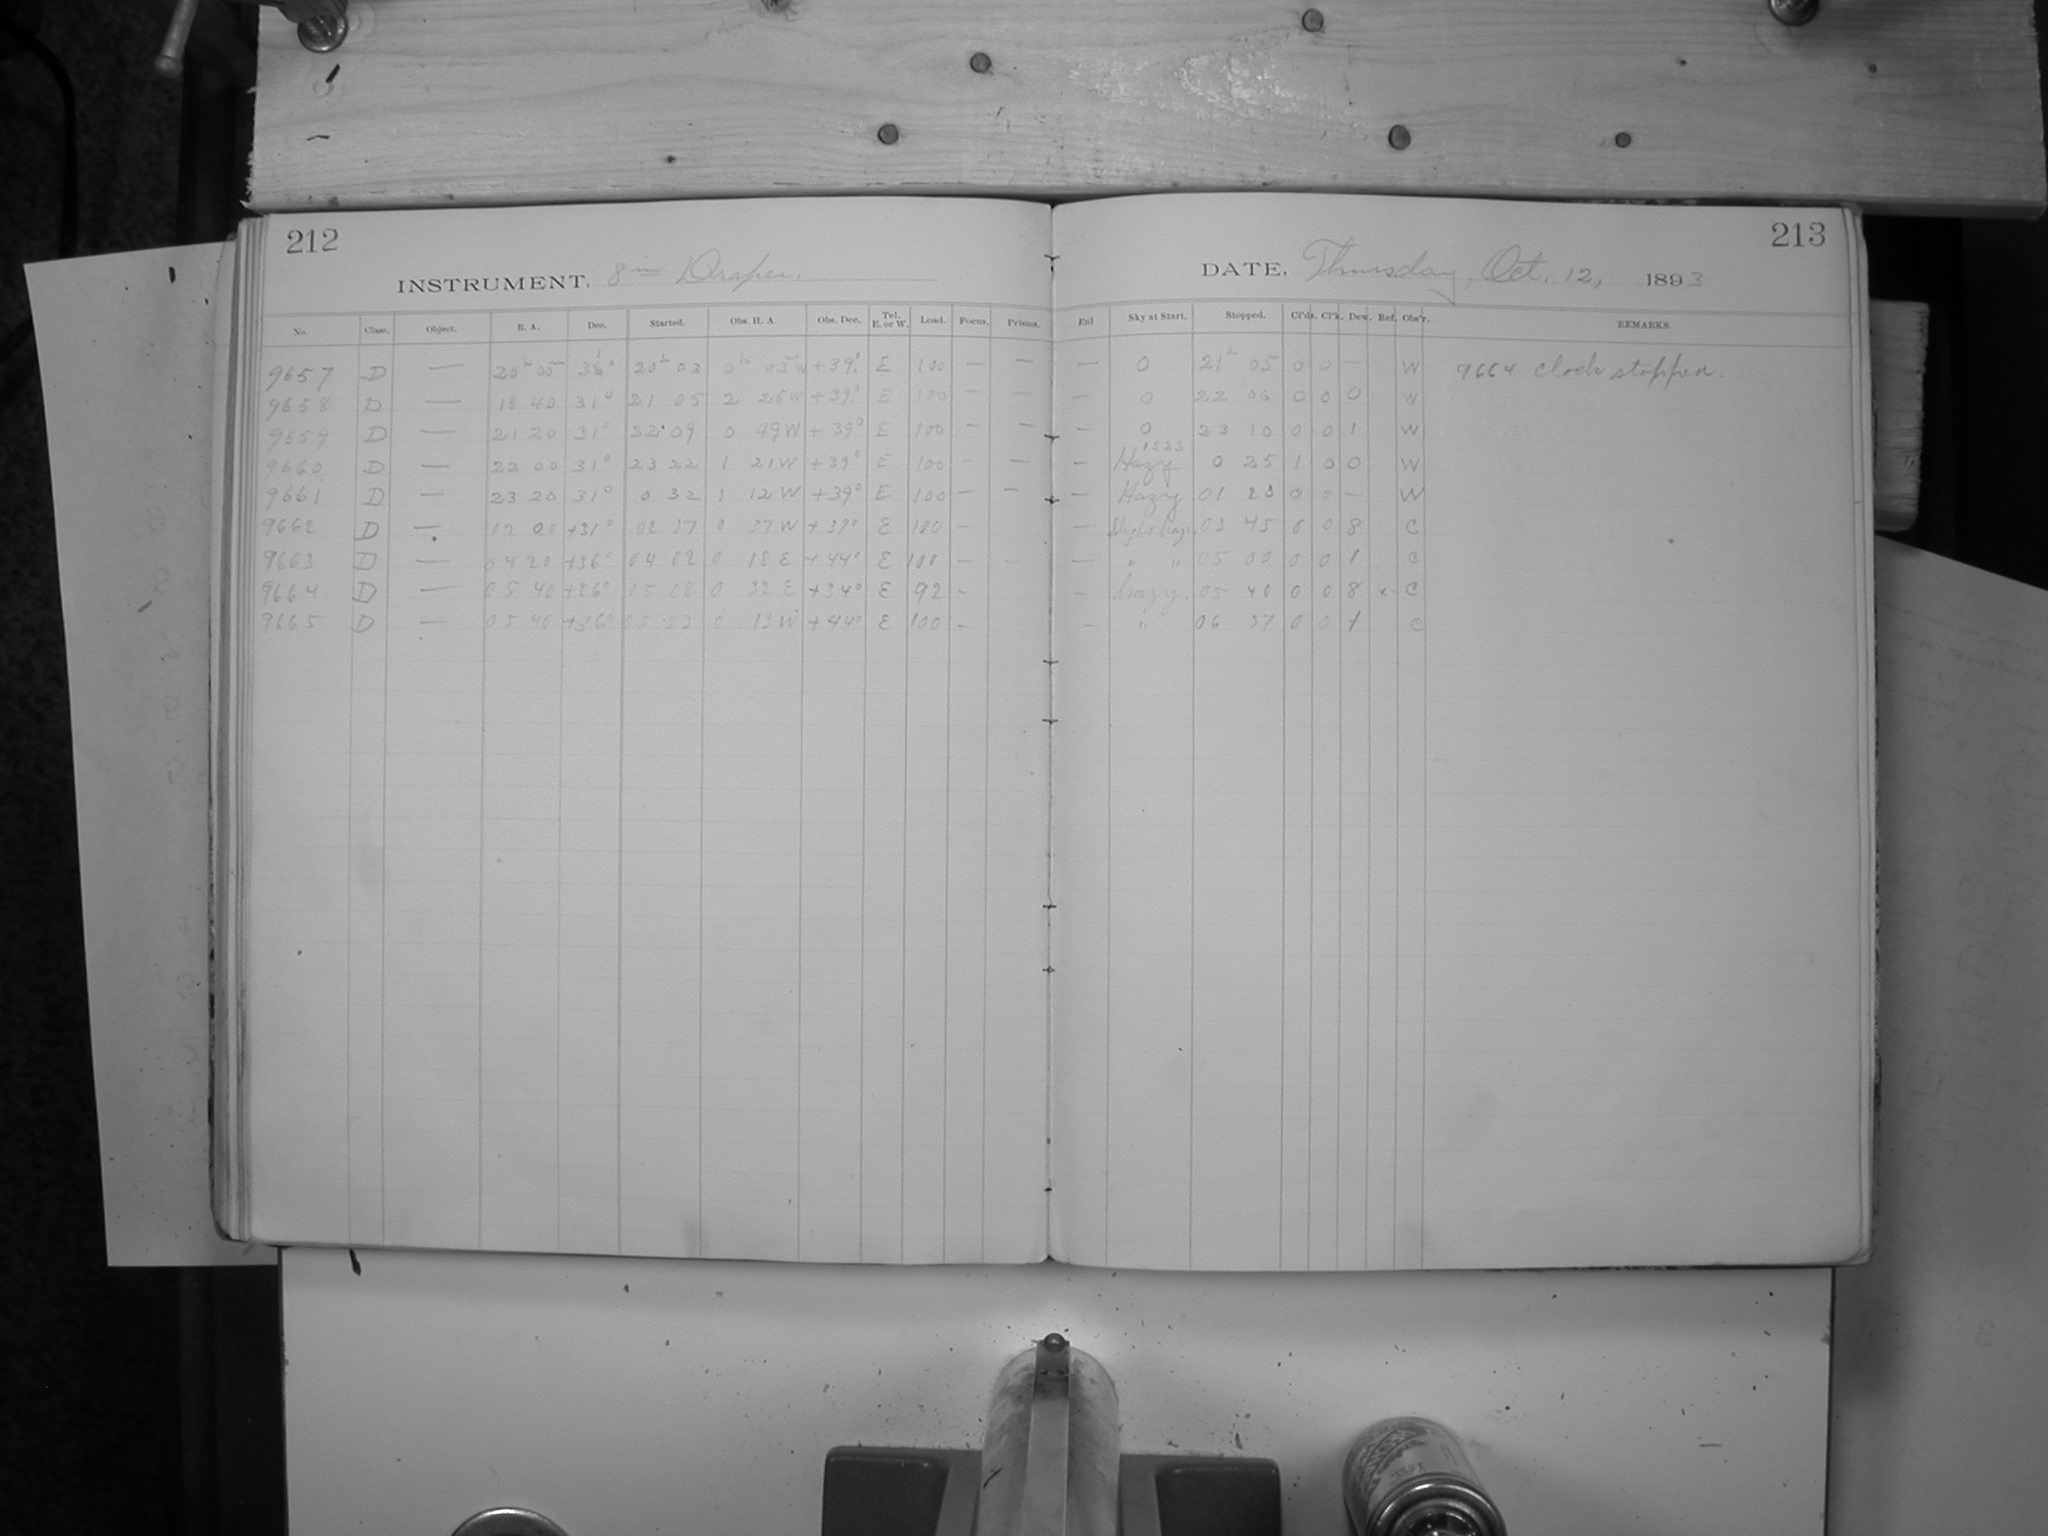 212
INSTRUMENT. 8 in Draper.
213
DATE. Thursday, Oct. 12, 1893
No. Class. Object. R. A. Dec. Started. Obs. H. A. Obs. Dec. Tel. E. or W. Load. Focus. Prisms. Enl Sky at Start. Stopped. Cl'ds. Cl'k. Dew. Ref. Obs'r. REMARKS.
9657 D — 20h 05m 31° 20h 03 0h 05m W +39° E 100 — — — 0 21h 05 0 0 — W 9664 clock stopped.
9658 D — 18 40 31° 21 05 2 25 W +39° E 100 — — — 0 22 06 0 0 0 W
9659 D — 21 20 31° 22 09 0 49 W +39° E 100 — — — 0 23 10 0 0 1 W
9660 D — 22 00 31° 23 22 1 21 W +39° E 100 — — — Hazy 0 25 1 0 0 W
9661 D — 23 20 31° 0 32 1 12 W +39° E 100 — — — Hazy 01 23 0 0 — W
9662 D — 02 00 +31° 02 37 0 37 W +39° E 100 — — 03 45 0 0 8 C
9663 D — 04 20 +36° 04 02 0 18 E +44° E 100 — — — " " 05 00 0 0 1 C
9664 D — 05 40 +26° 05 08 0 32 E +34° E 92 - - hazy. 05 40 0 0 8 x C
9665 D — 05 40 +36° 05 53 0 13 W +44° E 100 - — " 06 57 0 0 1 C